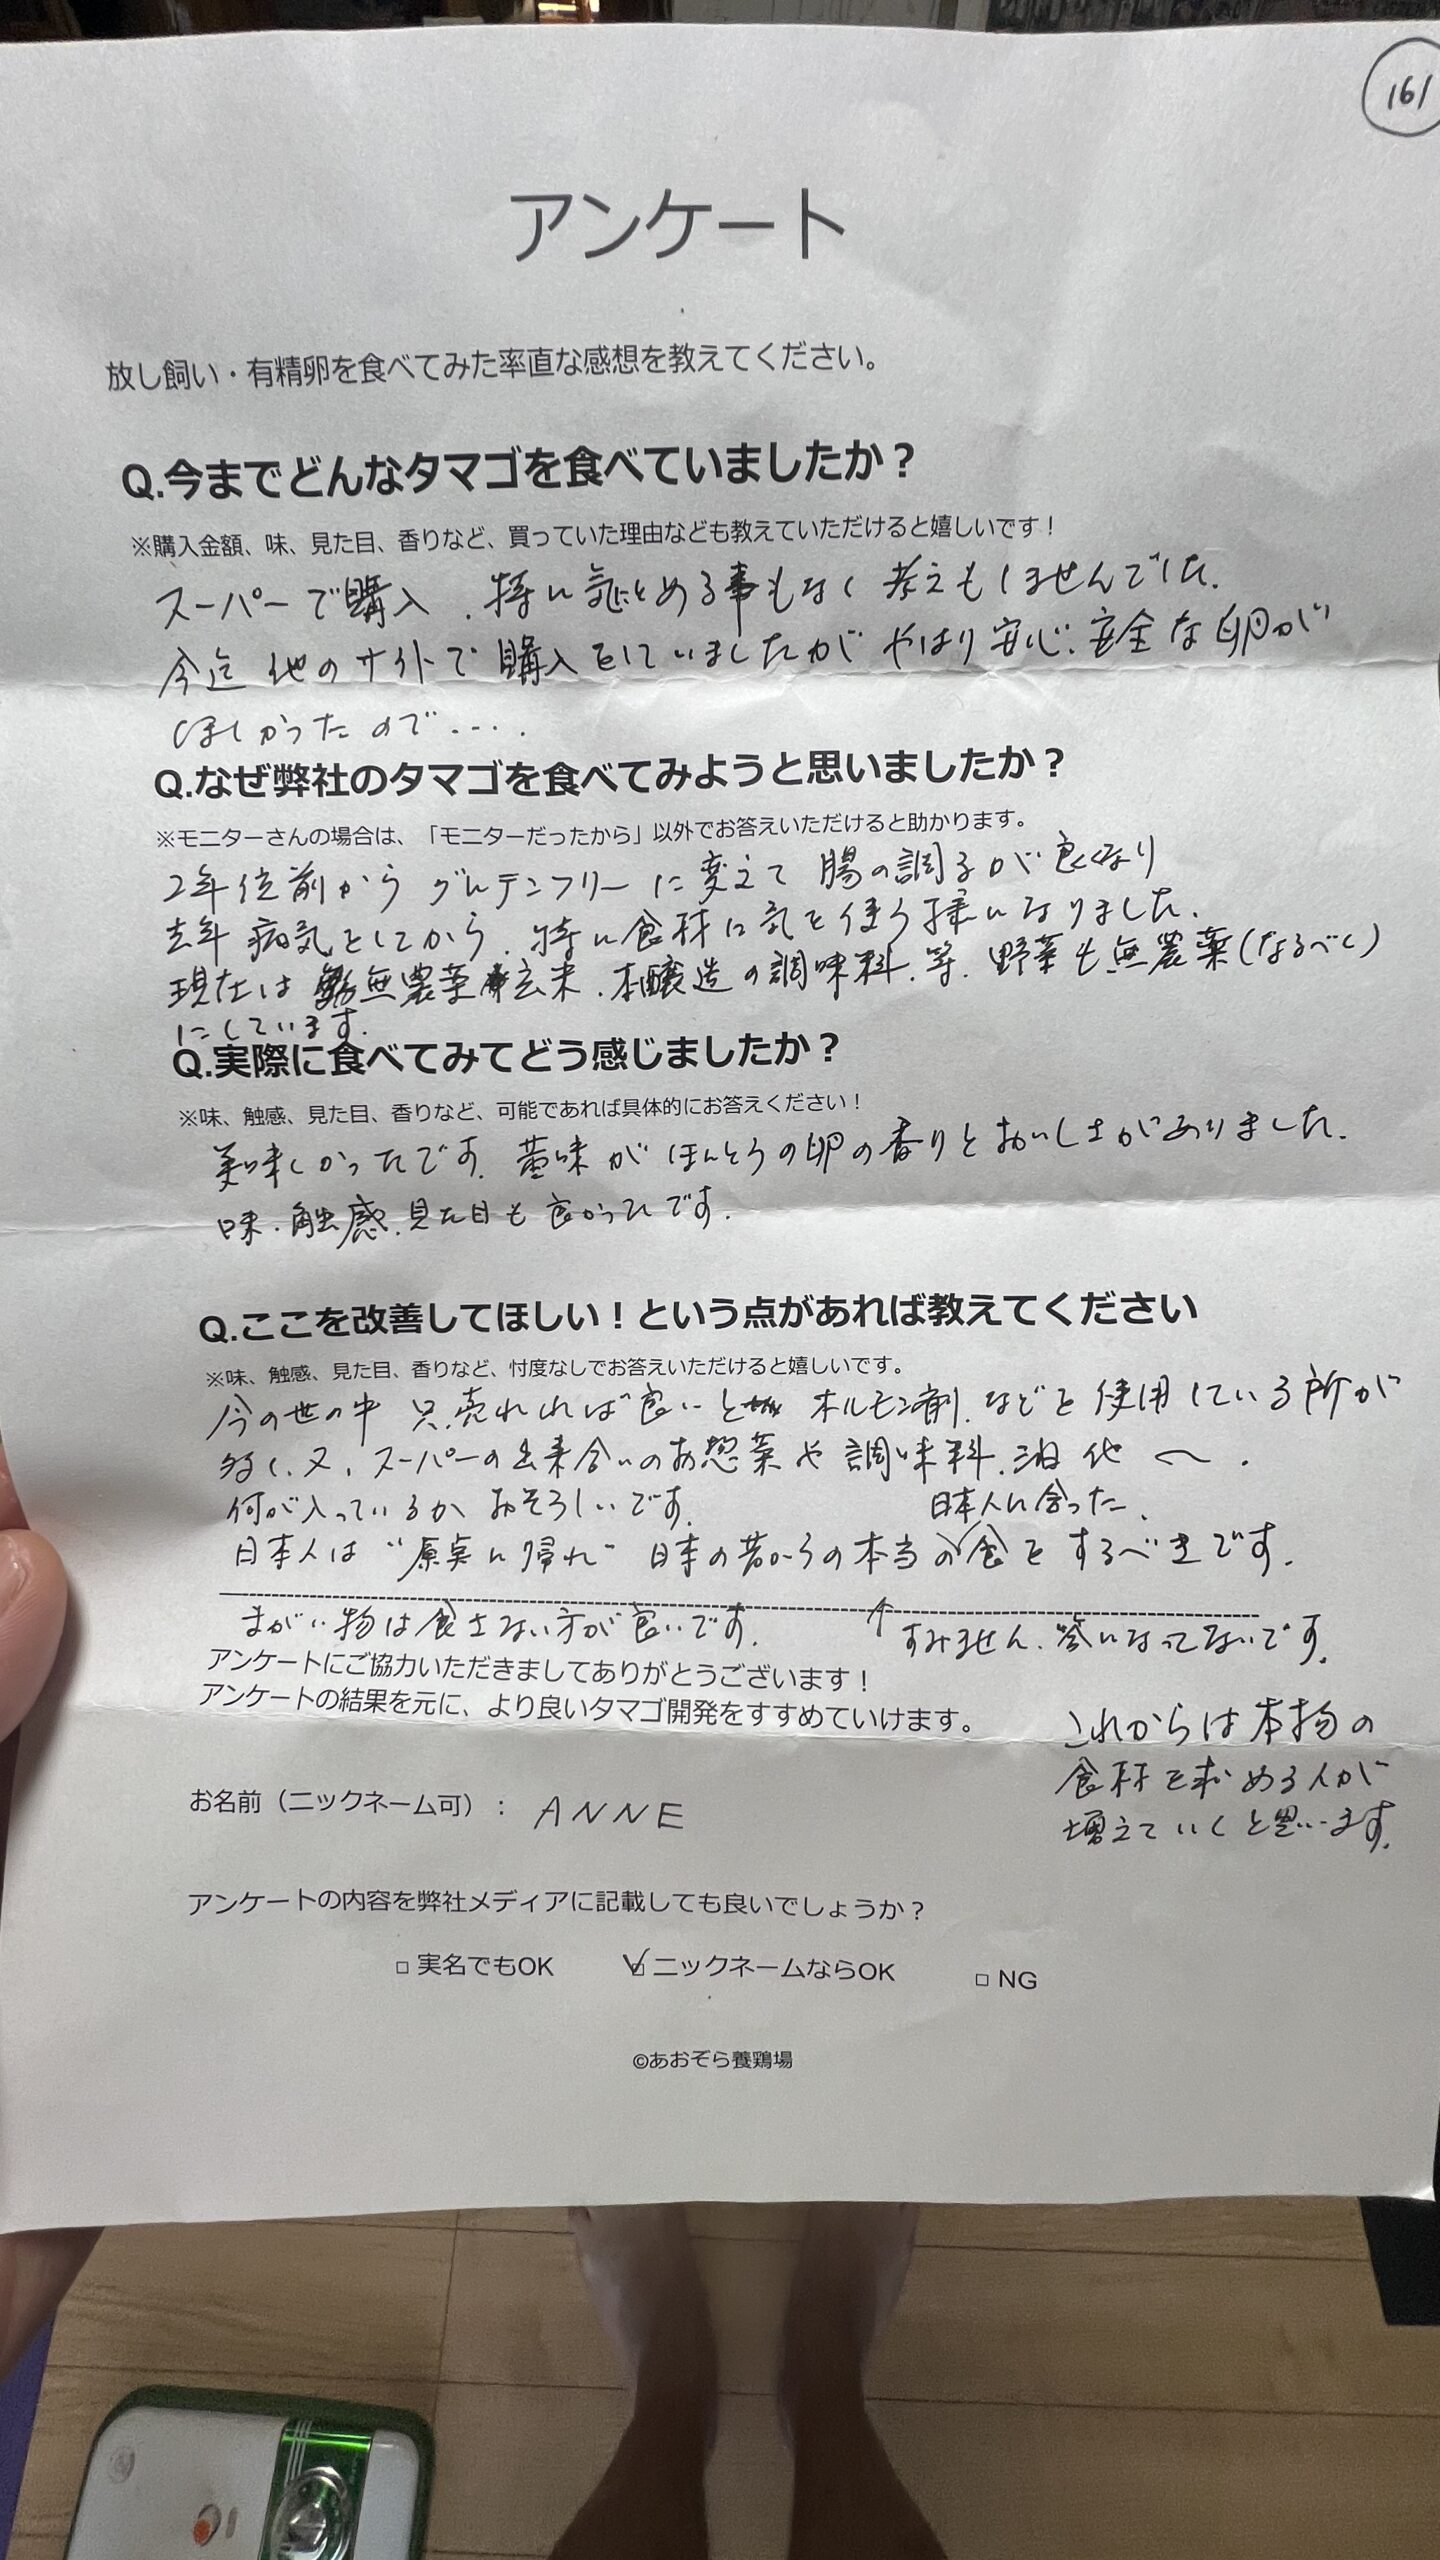 161
アンケート
放し飼い・有精卵を食べてみた率直な感想を教えてください。
Q.今までどんなタマゴを食べていましたか？
※購入金額、味、見た目、香りなど、買っていた理由なども教えていただけると嬉しいです！
スーパーで購入、特に気にとめる事もなく考えもしませんでした。
今迄他のサイトで購入をしていましたがやはり安心、安全な卵が
ほしかったので‥‥
Q.なぜ弊社のタマゴを食べてみようと思いましたか？
※モニターさんの場合は、「モニターだったから」以外でお答えいただけると助かります。
2年位前からグルテンフリーに変えて腸の調子が良くなり
去年病気をしてから、特に食材に気を使う様になりました。
現在は無農薬玄米、本醸造の調味料、等、野菜も無農薬(なるべく)
にしています。
Q.実際に食べてみてどう感じましたか？
※味、触感、見た目、香りなど、可能であれば具体的にお答えください！
美味しかったです。黄味がほんとうの卵の香りとおいしさがありました。
味、触感、見た目も良かったです。
Q.ここを改善してほしい！という点があれば教えてください
※味、触感、見た目、香りなど、忖度なしでお答えいただけると嬉しいです。
今の世の中只、売れれば良いとホルモン剤、などを使用している所が
多く、又、スーパーの出来合いのお惣菜や調味料、油他〜。
何が入っているかおそろしいです。
日本人に合った、
日本人は"原点に帰れ"日本の昔からの本当の食をするべきです。
まがい物は食さない方が良いです。
↑すみません、答になってないです。
アンケートにご協力いただきましてありがとうございます！
アンケートの結果を元に、より良いタマゴ開発をすすめていけます。
これからは本物の
食材を求める人が
増えていくと思います。
お名前（ニックネーム可）：ANNE
アンケートの内容を弊社メディアに記載しても良いでしょうか？
□ 実名でもOK ☑ ニックネームならOK □ NG
©あおぞら養鶏場